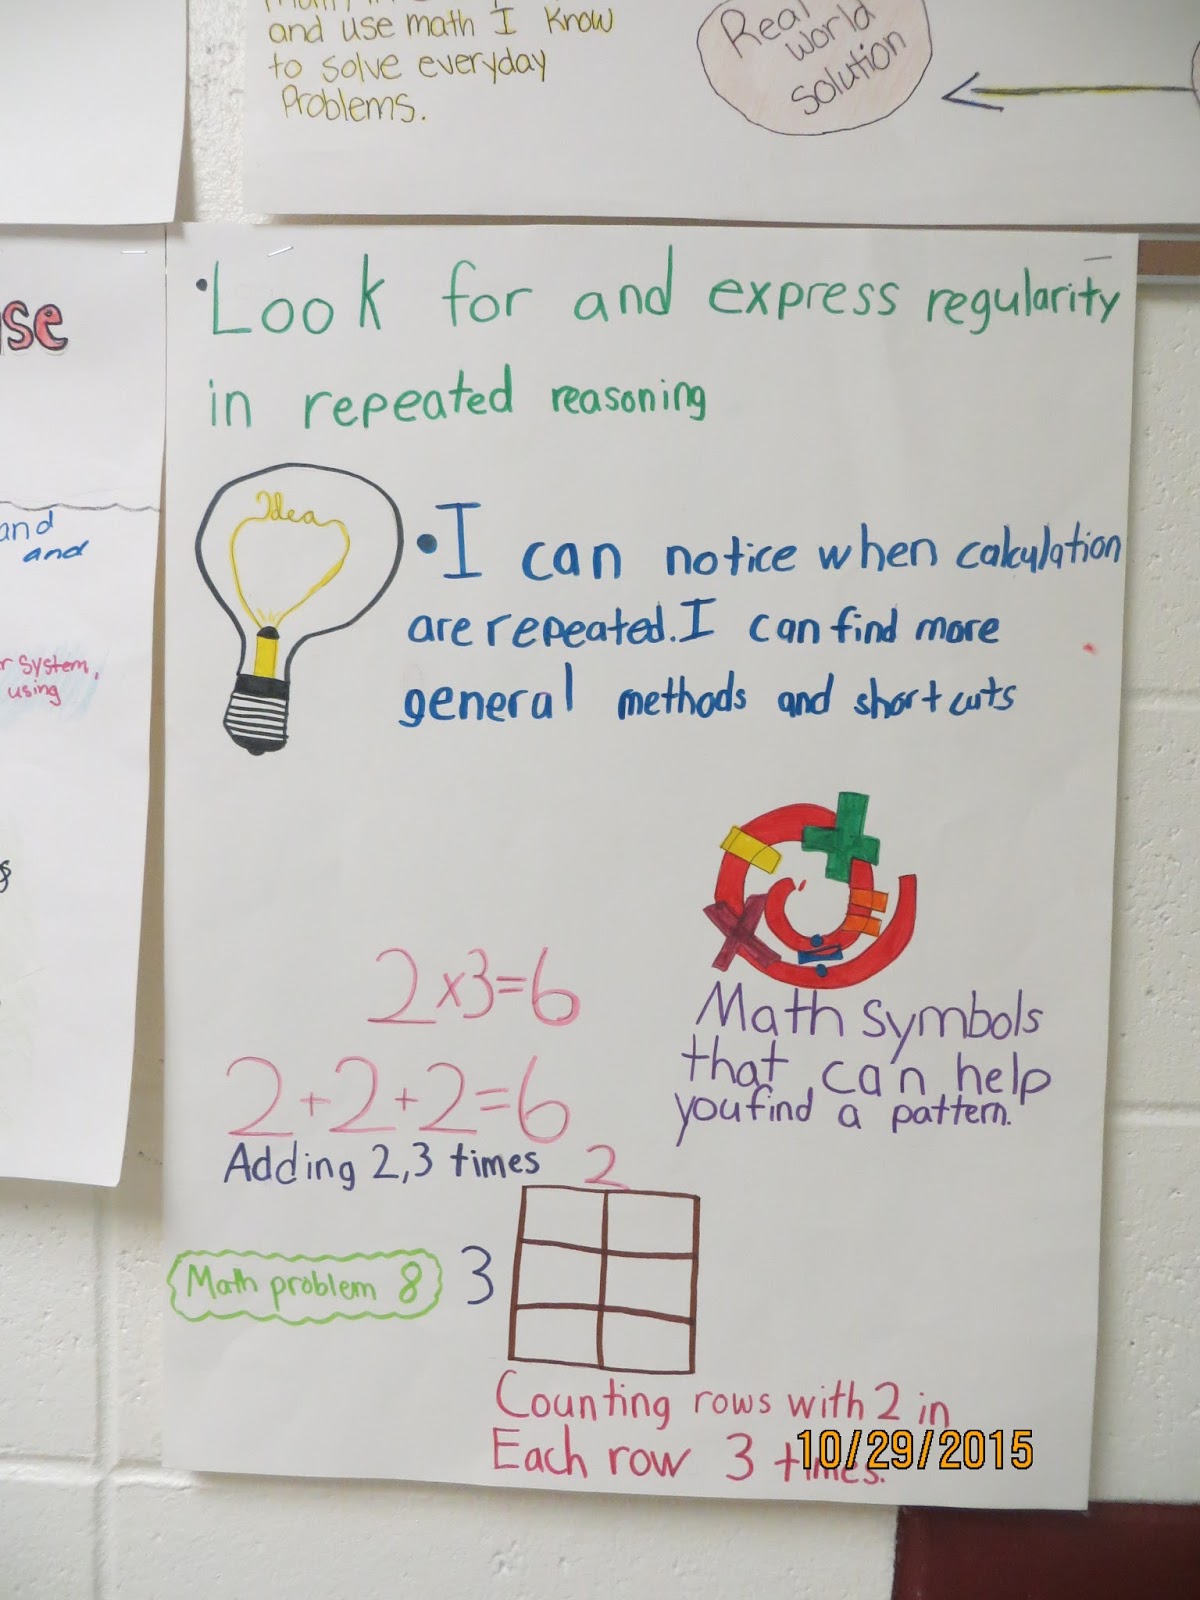 and use math I know
to solve everyday
Problems.
Real
world
solution
se
and
and
r system,
using
• Look for and express regularity
in repeated reasoning
Idea
• I can notice when calculation
are repeated. I can find more
general methods and short cuts
2x3=6
2+2+2=6
Adding 2,3 times
Math symbols
that can help
you find a pattern.
2
Math problem 8
3
Counting rows with 2 in
Each row 3 times.
10/29/2015